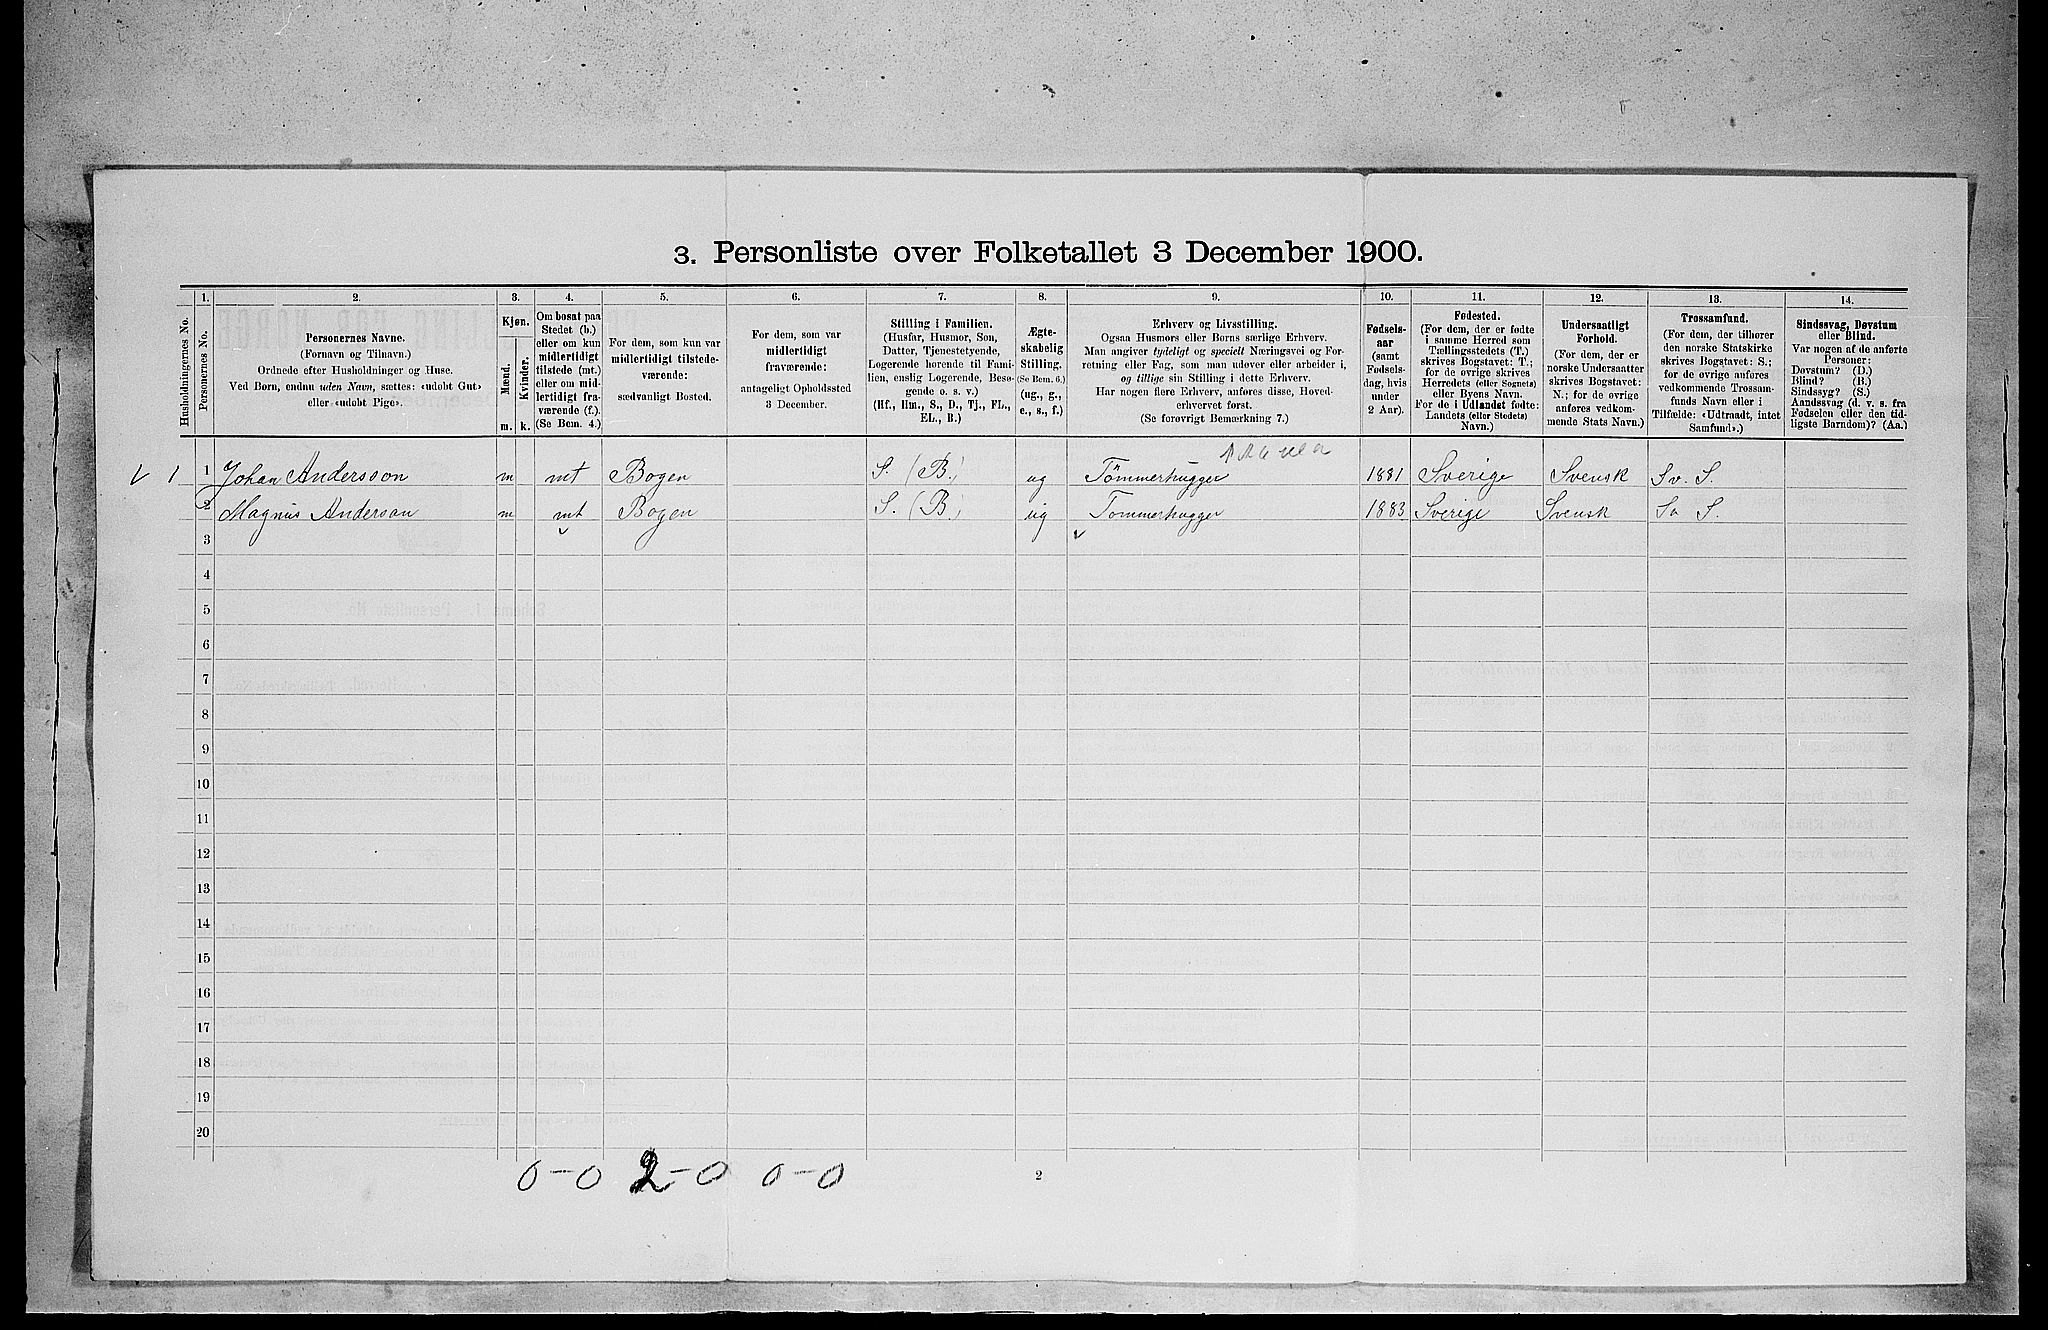 3. Personliste over Folketallet 3 December 1900.
Husholdningernes No.
1.
Personernes No.
2.
Personernes Navne.
(Fornavn og Tilnavn.)
Ordnede efter Husholdninger og Huse.
Ved Børn, endnu uden Navn, sættes: «udøbt Gut»
eller «udøbt Pige».
3.
Kjøn.
Mænd.
Kvinder.
m.
k.
4.
Om bosat paa
Stedet (b.)
eller om kun
midlertidigt
tilstede (mt.)
eller om mid-
lertidigt fra-
værende (f.)
(Se Bem. 4.)
5.
For dem, som kun var
midlertidigt tilstede-
værende:
sædvanligt Bosted.
6.
For dem, som var
midlertidigt
fraværende:
antageligt Opholdssted
3 December.
7.
Stilling i Familien.
(Husfar, Husmor, Søn,
Datter, Tjenestetyende,
Logerende hørende til Fami-
lien, enslig Logerende, Besø-
gende o. s. v.)
(Hf., Hm., S., D., Tj., FL.,
EL., B.)
8.
Ægte-
skabelig
Stilling.
(Se Bem. 6.)
(ug., g.,
e., s., f.)
9.
Erhverv og Livsstilling.
Ogsaa Husmors eller Børns særlige Erhverv.
Man angiver tydeligt og specielt Næringsvei og For-
retning eller Fag, som man udøver eller arbeider i,
og tillige sin Stilling i dette Erhverv.
Har nogen flere Erhverv, anføres disse, Hoved-
erhvervet først.
(Se forøvrigt Bemærkning 7.)
10.
Fødsels-
aar
(samt
Fødsels-
dag, hvis
under
2 Aar).
11.
Fødested.
(For dem, der er fødte
i samme Herred som
Tællingsstedets (T.)
skrives Bogstavet: T.;
for de øvrige skrives
Herredets (eller Sognets)
eller Byens Navn.
For de i Udlandet fødte:
Landets (eller Stedets)
Navn.)
12.
Undersaatligt
Forhold.
(For dem, der er
norske Undersaatter
skrives Bogstavet:
N.; for de øvrige
anføres vedkom-
mende Stats Navn.)
13.
Trossamfund.
(For dem, der tilhører
den norske Statskirke
skrives Bogstavet: S.;
for de øvrige anføres
vedkommende Trossam-
funds Navn eller i
Tilfælde: «Udtraadt, intet
Samfund».)
14.
Sindssvag, Døvstum
eller Blind.
Var nogen af de anførte
Personer:
Døvstum? (D.)
Blind? (B.)
Sindssyg? (S.)
Aandssvag (d. v. s. fra
Fødselen eller den tid-
ligste Barndom)? (Aa.)
1 1 Johan Andersson m mt Bogen S. (B.) ug Tömmerhugger 1881 Sverige Svensk Sv. S.
2 Magnus Anderson m mt Bogen S. (B.) ug Tommerhugger 1883 Sverige Svensk Sv S.
3
4
5
6
7
8
9
10
11
12
13
14
15
16
17
18
19
20
0-0 2-0 0-0
2